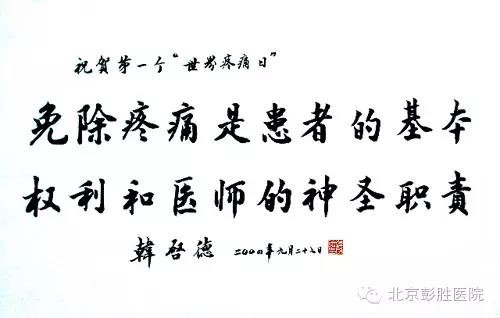 祝贺第一个“世界疼痛日”
免除疼痛是患者的基本
权利和医师的神圣职责
韩启德 二〇〇四年九月二十七日
北京彭胜医院